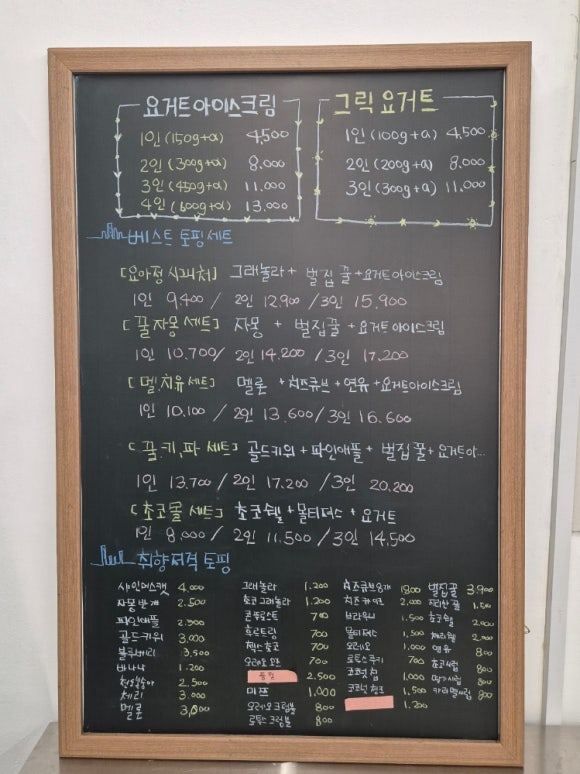 요거트아이스크림
1인 (150g+a) 4,500
2인 (300g+a) 8.000
3인 (450g+a) 11.000
4인 (600g+a) 13.000
그릭요거트
1인 (100g+a) 4.500
2인 (200g+a) 8.000
3인 (300g+a) 11,000
베스트 토핑세트
[요아정 시그니처] 그래놀라 + 벌집꿀 + 요거트아이스크림
1인 9,400 / 2인 12900 / 3인 15,900
[꿀자몽세트] 자몽 + 벌집꿀 + 요거트아이스크림
1인 10.700 / 2인 14.200 / 3인 17.200
[멜.치유세트] 멜론 + 치즈큐브 + 연유 + 요거트아이스크림
1인 10,100 / 2인 13.600 / 3인 16.600
[꿀.키.파 세트] 골드키위 + 파인애플 + 벌집꿀 + 요거트아...
1인 13.700 / 2인 17.200 / 3인 20.200
[초코몰세트] 초코쉘 + 몰티져스 + 요거트
1인 8,000 / 2인 11,500 / 3인 14,500
취향저격 토핑
샤인머스캣 4.000
자몽반개 2.500
파인애플 2.900
골드키위 3,000
블루베리 3,500
바나나 1.200
2,500
체리 3.000
멜론
그래놀라 1.200
초코그래놀라 1.200
콘푸로스트 700
후르트링 700
첵스초코 700
오레오 오즈 700
2.500
1,000
오레오크럼블 800
로투스크럼블 800
치즈큐브 1800
치즈케이크 2,000
브라우니 1.500
몰티져스 1.500
오레오 1.000
로투스쿠키 700
코코넛칩 1.000
1,500
1.200
벌집꿀 3.900
초코쉘 2,000
2,000
연유 800
초코시럽 800
딸기시럽 800
카라멜시럽 800